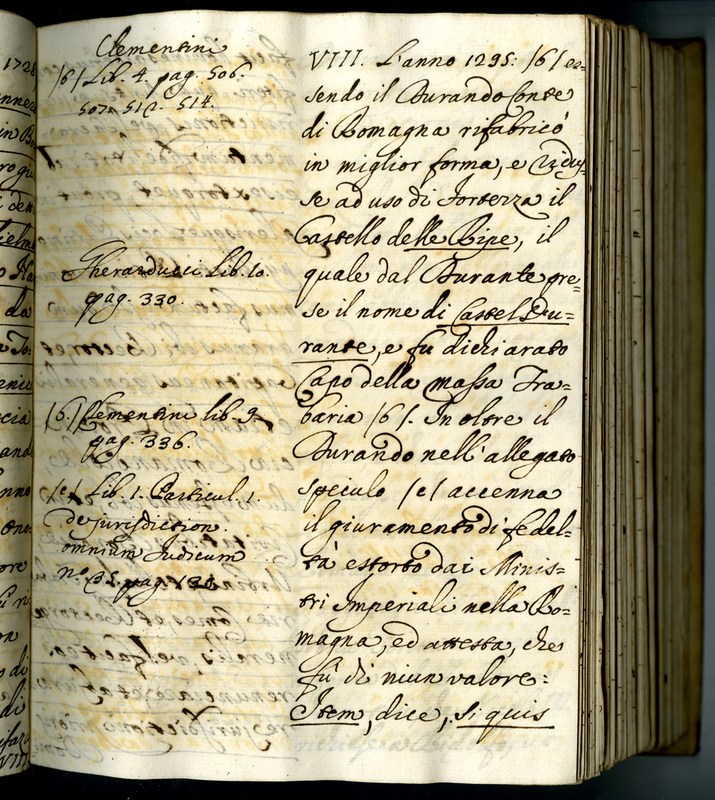 Clementini
/6/ Lib. 4. pag. 506.
507. 512. 514.
Gherarducci Lib. 10.
pag. 330.
/6./ Clementini lib. 3.
pag. 336.
/c/ Lib. 1. Particul. 1.
de jurisdiction.
omnium Judicum
n.º 35. pag. 136.
VIII. L'anno 1295: /6/ es=
sendo il Durando Conte
di Romagna rifabricò
in miglior forma, e ridus=
se ad uso di Fortezza il
Castello delle Ripe, il
quale dal Durante pre=
se il nome di Castel Du=
rante, e fù dichiarato
Capo della massa Tra=
baria /6/. In oltre il
Durando nell'allegato
speculo /c/ accenna
il giuramento di fedel=
tà estorto dai Minis=
tri Imperiali nella Ro=
magna, ed attesta, che
fù di niun valore:
Item, dice, si quis